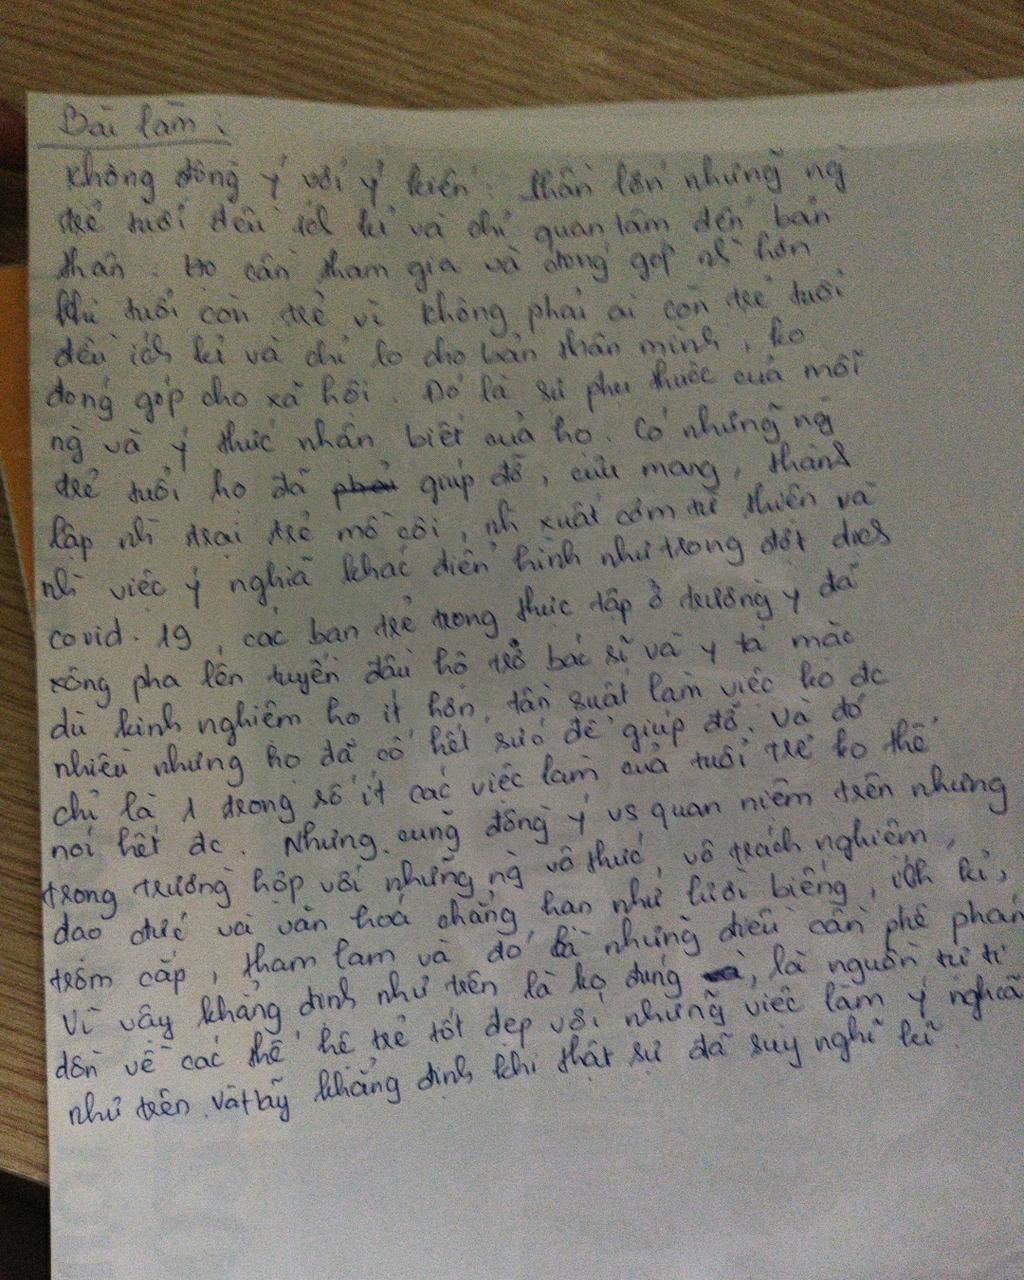 Bài làm:
Không đồng ý với ý kiến: Phần lớn những ng
trẻ tuổi đều ích kỉ và chỉ quan tâm đến bản
thân. Họ cần tham gia và đóng góp nh hơn
khi tuổi còn trẻ vì không phải ai còn trẻ tuổi
đều ích kỉ và chỉ lo cho bản thân mình, ko
đóng góp cho xã hội. Đó là sự phụ thuộc của mỗi
ng và ý thức nhận biết của họ. Có những ng
trẻ tuổi họ đã giúp đỡ, cưu mang, thành
lập nh trại trẻ mồ côi, nh xuất cơm từ thiện và
nh việc ý nghĩa khác điển hình như trong đợt dịch
covid. 19, các bạn trẻ trong thực tập ở trường y đã
xông pha lên tuyến đầu hỗ trợ bác sĩ và y tá mặc
dù kinh nghiệm họ ít hơn, tần suất làm việc ko đc
nhiều nhưng họ đã cố hết sức để giúp đỡ. Và đó
chỉ là 1 trong số ít các việc làm của tuổi trẻ ko thể
nói hết đc. Nhưng cũng đồng ý vs quan niệm trên nhưng
trong trường hợp với những ng vô thức, vô trách nghiệm,
đạo đức và văn hoá chẳng hạn như lười biếng, ích kỉ,
trộm cắp, tham lam và đó là những điều cần phê phán
Vì vậy khẳng định như trên là ko đúng, là nguồn từ ti
đồn về các thế hệ trẻ tốt đẹp với những việc làm ý nghĩa
như trên. Vật hãy khẳng định khi thật sự đã suy nghĩ kĩ.